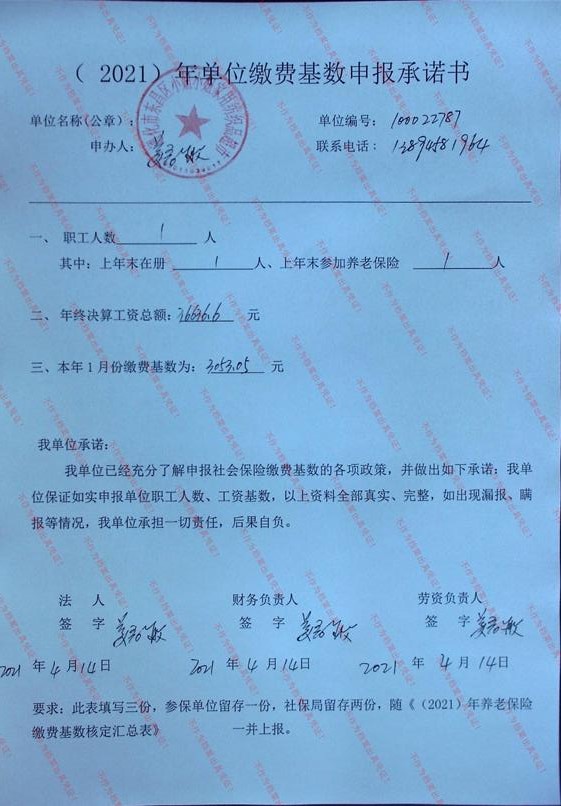 （2021）年单位缴费基数申报承诺书
单位名称(公章)：
单位编号：100022787
申办人：
联系电话：13894581964
一、 职工人数 1 人
其中：上年末在册 1 人、上年末参加养老保险 1 人
二、年终决算工资总额：36636.6 元
三、本年1月份缴费基数为：3053.05 元
我单位承诺：
我单位已经充分了解申报社会保险缴费基数的各项政策，并做出如下承诺：我单
位保证如实申报单位职工人数、工资基数，以上资料全部真实、完整，如出现漏报、瞒
报等情况，我单位承担一切责任，后果自负。
法 人 财务负责人 劳资负责人
签 字 签 字 签 字
2021 年 4 月 14 日 2021 年 4 月 14 日 2021 年 4 月 14 日
要求：此表填写三份，参保单位留存一份，社保局留存两份，随《（2021）年养老保险
缴费基数核定汇总表》 一并上报。